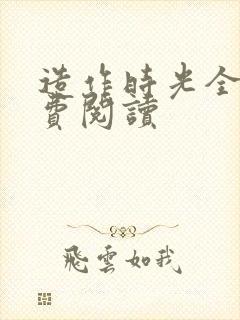 造作時光全
費閱讀
飛雲如我